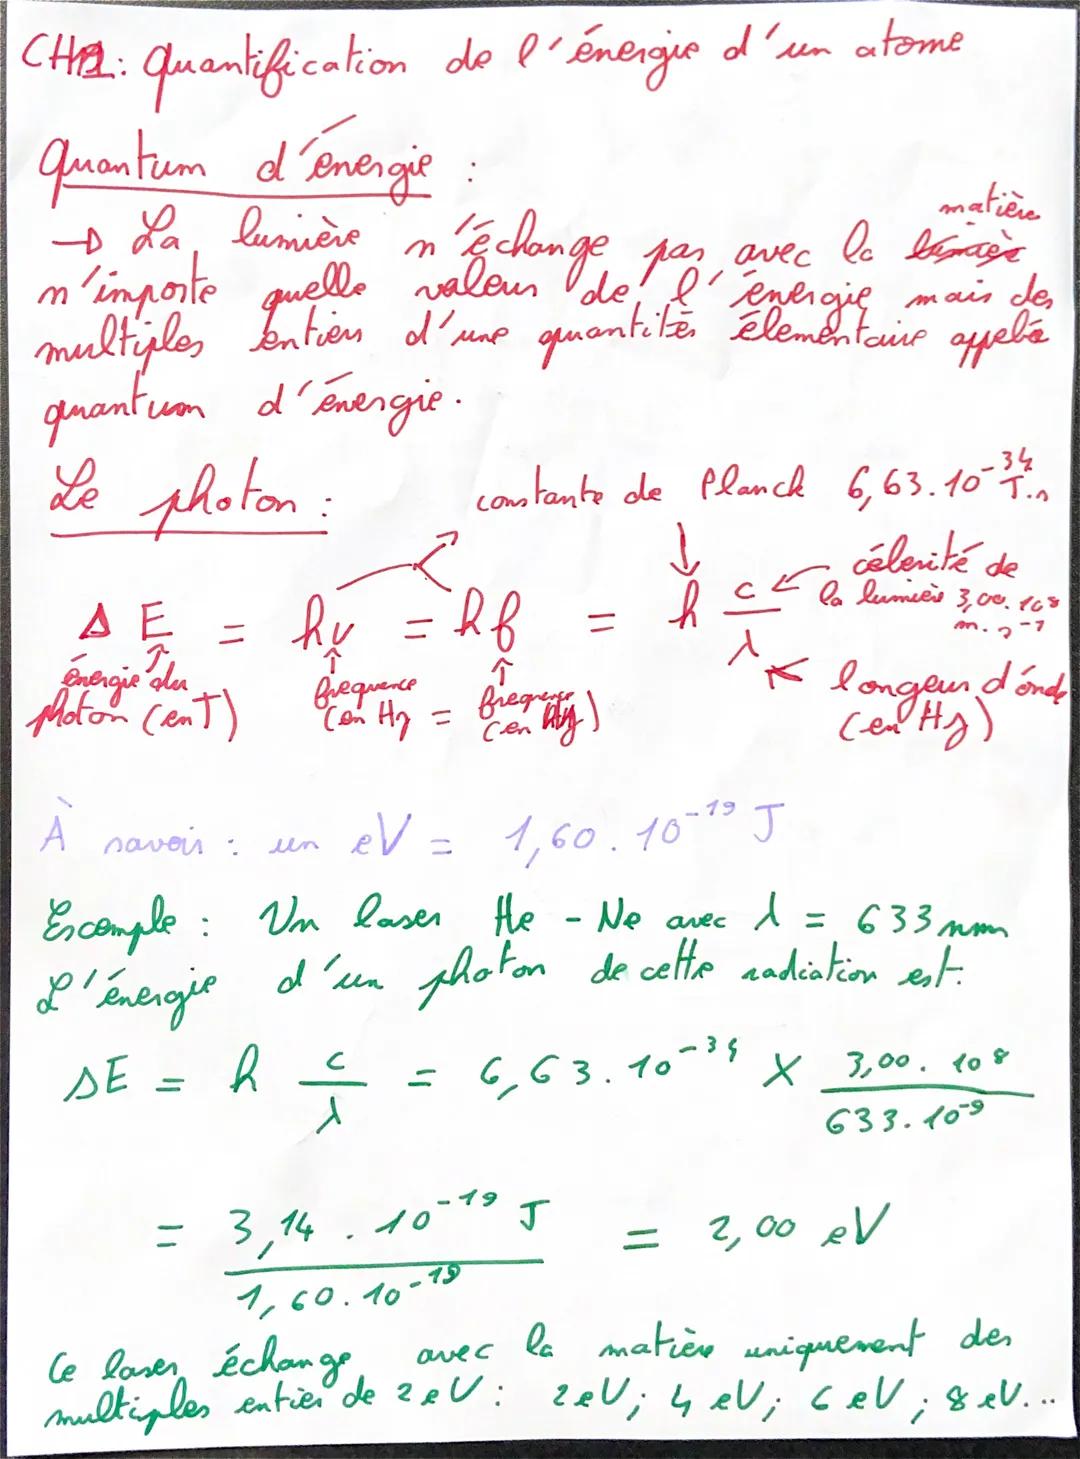 CH2: Quantification de l'énergie d'un atome
Quantum d'énergie :
→ La lumière n'échange pas avec la matière
n'importe quelle valeur de l'énergie mais des
multiples entiers d'une quantités élementaire appelé
quantum d'énergie.
Le photon : constante de Planck 6,63.10^-34 J.s
ΔE = hν = hf = h c/λ
célérité de
la lumière 3,00.10^8
m.s^-1
énergie du
photon (en J)
frequence
(en Hz =
frequence
(en Hz)
longeur d'onde
(en Hz)
À savoir : un eV = 1,60.10^-19 J
Excemple : Un laser He - Ne avec λ = 633 nm
L'énergie d'un photon de cette radiation est:
ΔE = h c/λ = 6,63.10^-34 × 3,00.10^8 / 633.10^-9
= 3,14.10^-19 J / 1,60.10^-19 = 2,00 eV
Ce laser échange avec la matière uniquement des
multiples entier de 2 eV : 2 eV; 4 eV; 6 eV; 8 eV...